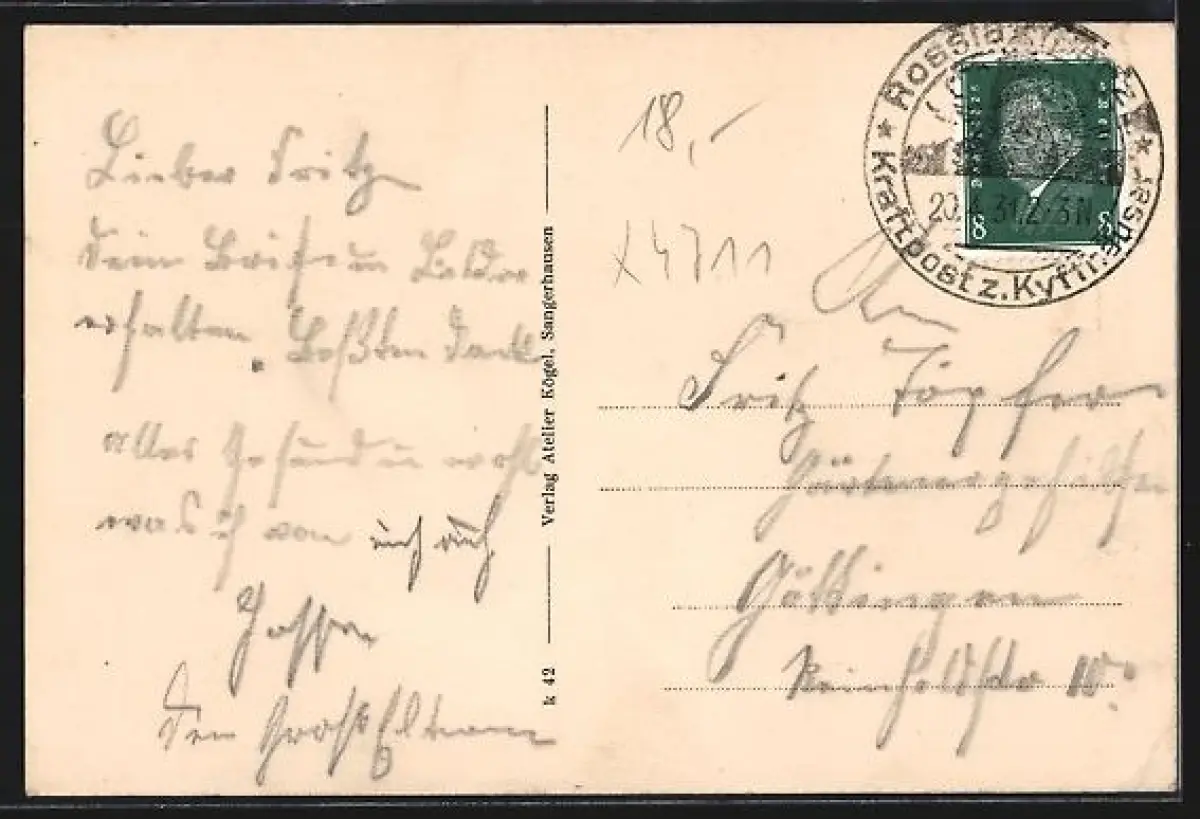 Lieber Fritz
Dein Brief und Bilder
erhalten. Besten Dank
alles Gesund u wohl
was ich von euch auch
hoffen
Dein Großeltern
Verlag Atelier Kögel, Sangerhausen
k 42
18,-
x4711
Rossla
Kraftpost z. Kyffh
20. 31.2-3N
8
8
An
Fritz Töpfer
Gärtnergehilfe
Göttingen
Reinholdstr 10